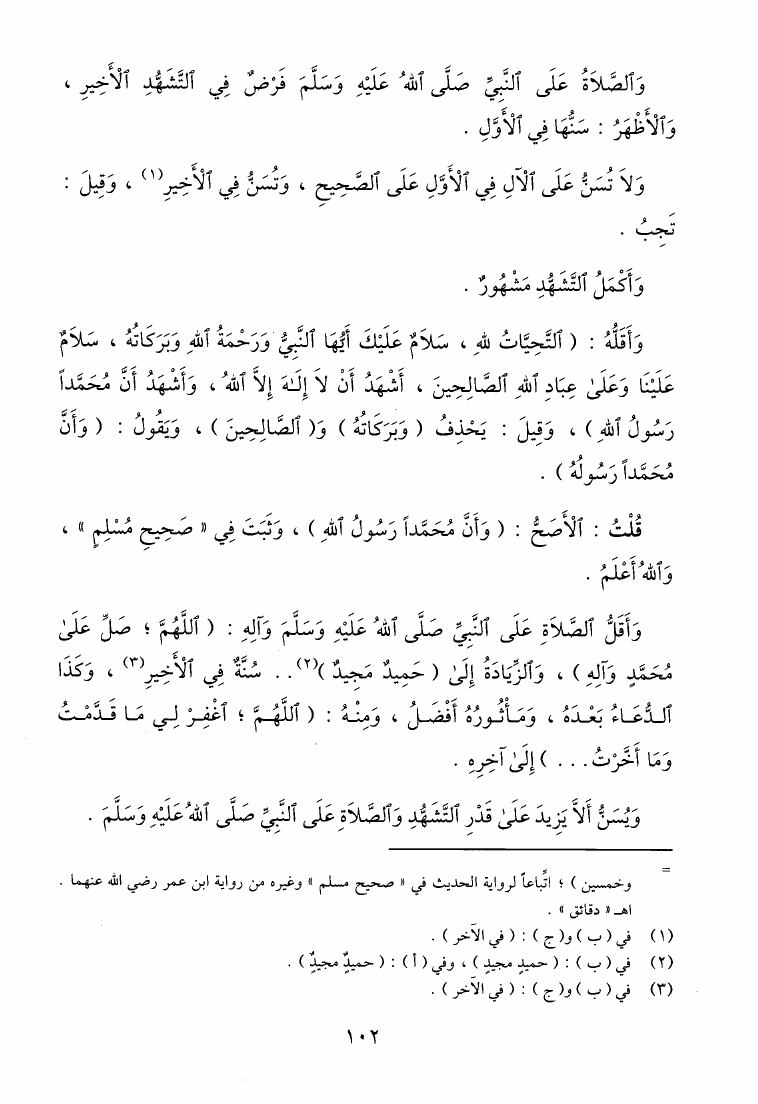 وَٱلصَّلاَةُ عَلَى ٱلنَّبِيِّ صَلَّى ٱللهُ عَلَيْهِ وَسَلَّمَ فَرْضٌ فِي ٱلتَّشَهُّدِ ٱلْأَخِيرِ ،
وَٱلْأَظْهَرُ : سَنُّهَا فِي ٱلْأَوَّلِ .
وَلاَ تُسَنُّ عَلَى ٱلْآلِ فِي ٱلْأَوَّلِ عَلَى ٱلصَّحِيحِ ، وَتُسَنُّ فِي ٱلْأَخِيرِ(١) ، وَقِيلَ :
تَجِبُ .
وَأَكْمَلُ ٱلتَّشَهُّدِ مَشْهُورٌ .
وَأَقَلُّهُ : ( ٱلتَّحِيَّاتُ للهِ ، سَلاَمٌ عَلَيْكَ أَيُّهَا ٱلنَّبِيُّ وَرَحْمَةُ ٱللهِ وَبَرَكَاتُهُ ، سَلاَمٌ
عَلَيْنَا وَعَلَىٰ عِبَادِ ٱللهِ ٱلصَّالِحِينَ ، أَشْهَدُ أَنْ لاَ إِلَـٰهَ إِلاَّ ٱللهُ ، وَأَشْهَدُ أَنَّ مُحَمَّداً
رَسُولُ ٱللهِ ) ، وَقِيلَ : يَحْذِفُ ( وَبَرَكَاتُهُ ) وَ( ٱلصَّالِحِينَ ) ، وَيَقُولُ : ( وَأَنَّ
مُحَمَّداً رَسُولُهُ ) .
قُلْتُ : ٱلْأَصَحُّ : ( وَأَنَّ مُحَمَّداً رَسُولُ ٱللهِ ) ، وَثَبَتَ فِي « صَحِيحِ مُسْلِمٍ » ،
وَٱللهُ أَعْلَمُ .
وَأَقَلُّ ٱلصَّلاَةِ عَلَى ٱلنَّبِيِّ صَلَّى ٱللهُ عَلَيْهِ وَسَلَّمَ وَآلِهِ : ( ٱللَّهُمَّ ؛ صَلِّ عَلَىٰ
مُحَمَّدٍ وَآلِهِ ) ، وَٱلزِّيَادَةُ إِلَىٰ ( حَمِيدٌ مَجِيدٌ )(٢) . . سُنَّةٌ فِي ٱلْأَخِيرِ(٣) ، وَكَذَا
ٱلدُّعَاءُ بَعْدَهُ ، وَمَأْثُورُهُ أَفْضَلُ ، وَمِنْهُ : ( ٱللَّهُمَّ ؛ ٱغْفِرْ لِي مَا قَدَّمْتُ
وَمَا أَخَّرْتُ . . . ) إِلَىٰ آخِرِهِ .
وَيُسَنُّ أَلاَّ يَزِيدَ عَلَىٰ قَدْرِ ٱلتَّشَهُّدِ وَٱلصَّلاَةِ عَلَى ٱلنَّبِيِّ صَلَّى ٱللهُ عَلَيْهِ وَسَلَّمَ .
= وخمسين ) ؛ اتِّباعاً لرواية الحديث في « صحيح مسلم » وغيره من رواية ابن عمر رضي الله عنهما .
اهـ « دقائق » .
(١) في ( ب ) و( ج ) : ( في الآخر ) .
(٢) في ( ب ) : ( حميدٍ مجيدٍ ) ، وفي ( أ ) : ( حميدٌ مجيدٌ ) .
(٣) في ( ب ) و( ج ) : ( في الآخر ) .
١٠٢